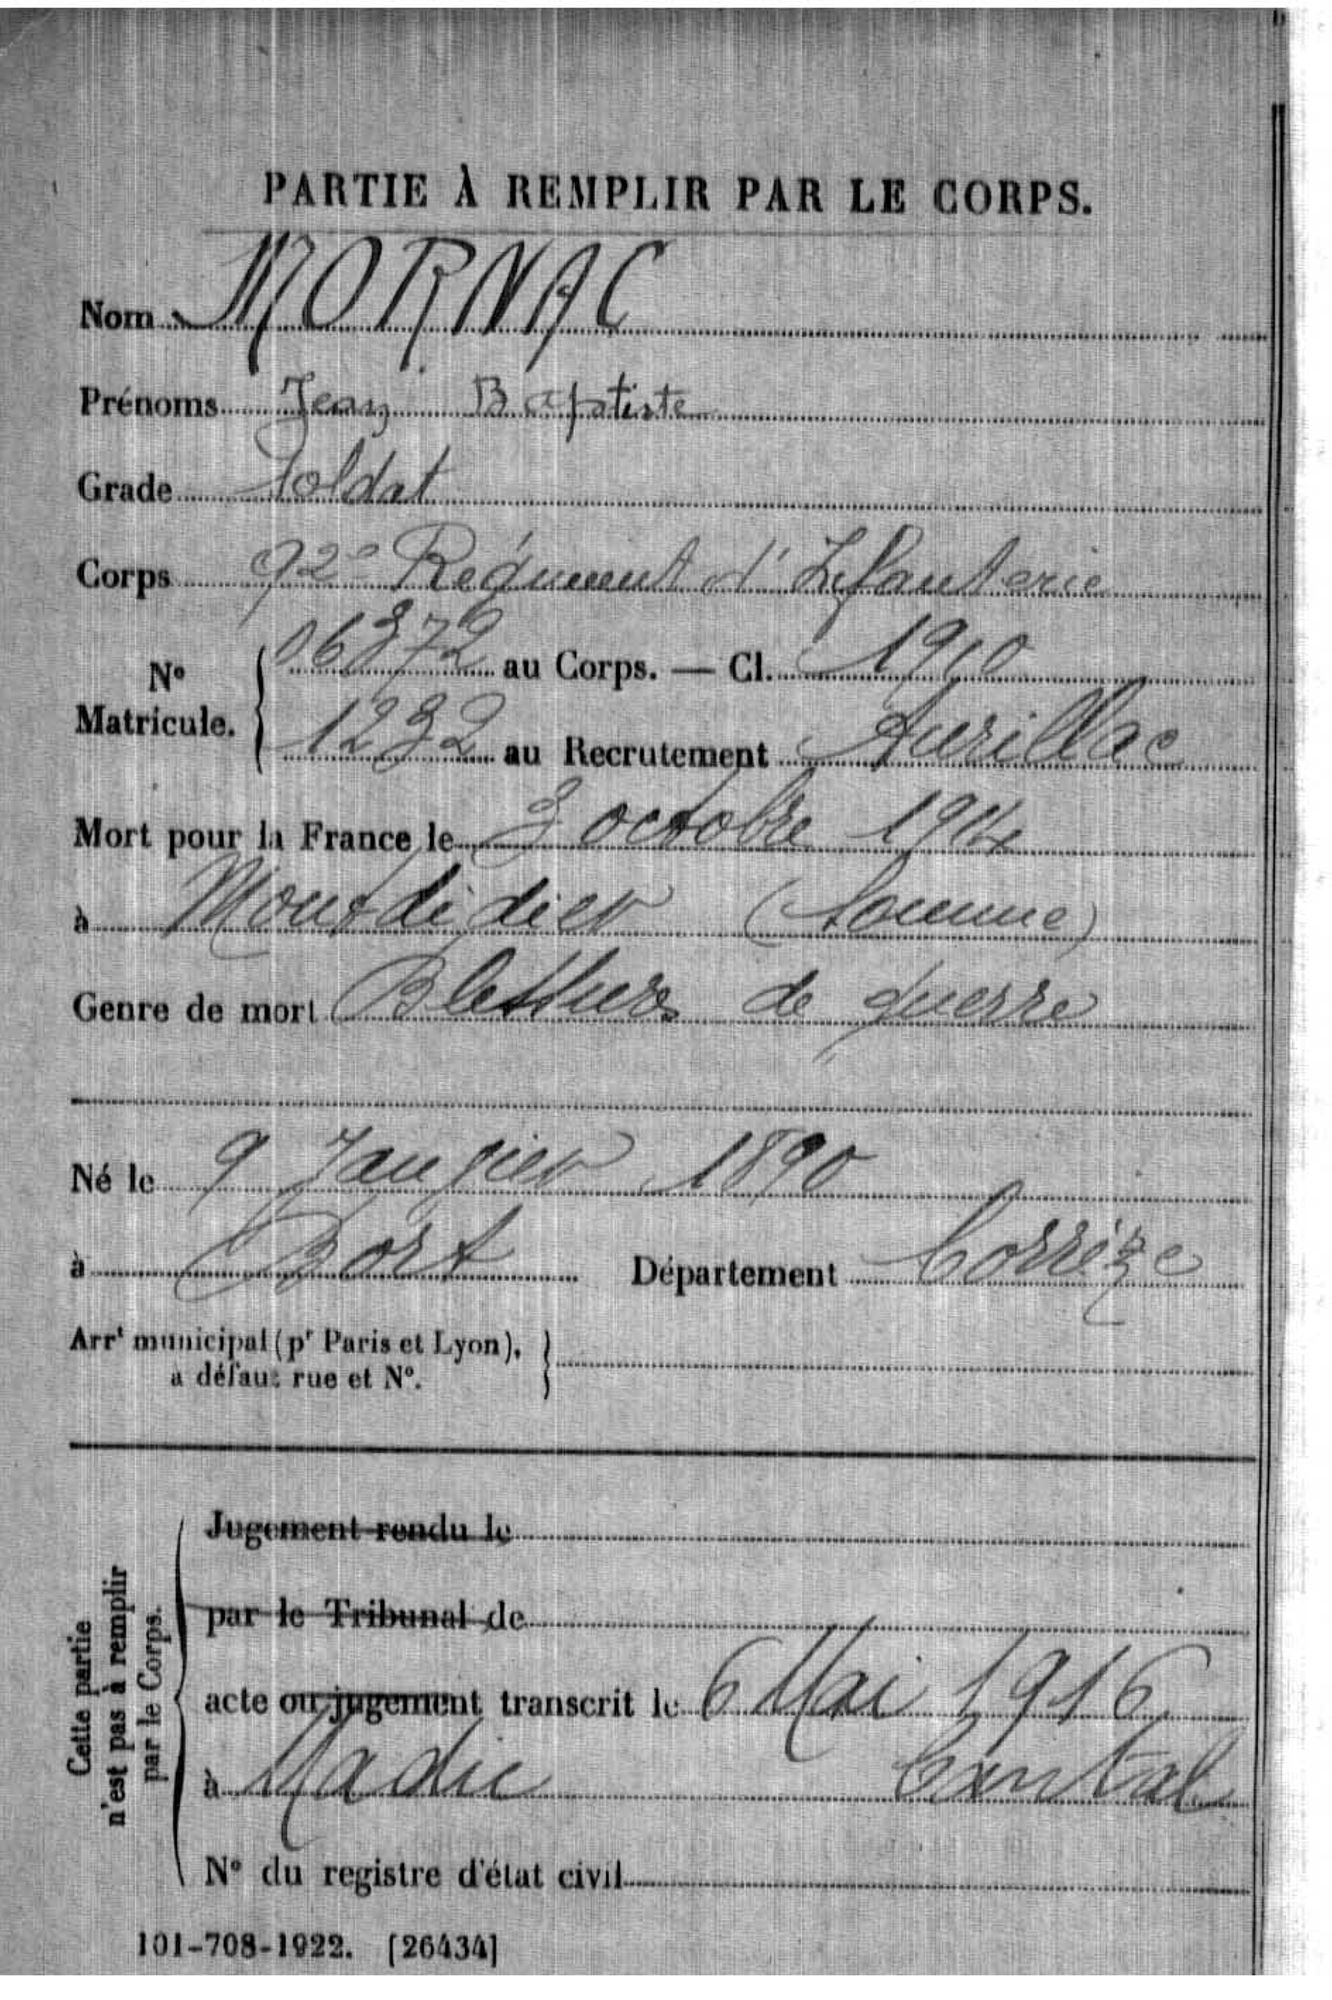 PARTIE À REMPLIR PAR LE CORPS.
Nom MORNAC
Prénoms Jean Baptiste
Grade Soldat
Corps 92e Régiment d'Infanterie
N° Matricule. { 06372 au Corps. — Cl. 1910
1232 au Recrutement Aurillac
Mort pour la France le 3 octobre 1914
à Montdidier (Somme)
Genre de mort Blessures de guerre
Né le 9 Janvier 1890
à Bort Département Corrèze
Arrt municipal (pr Paris et Lyon), }
à défaut rue et N°.
Cette partie
n'est pas à remplir
par le Corps.
Jugement rendu le
par le Tribunal de
acte ou jugement transcrit le 6 Mai 1916
à Madic Cantal
N° du registre d'état civil
101-708-1922. [26434]